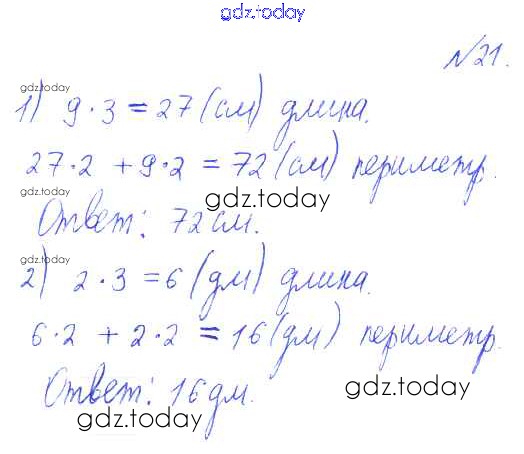 gdz.today
№21.
gdz.today
1) 9·3=27 (см) длина.
27·2 +9·2 =72 (см) периметр.
gdz.today
gdz.today
Ответ: 72см.
gdz.today
2) 2·3=6 (дм) длина.
6·2 +2·2 =16 (дм) периметр.
gdz.today
Ответ: 16дм.
gdz.today
gdz.today